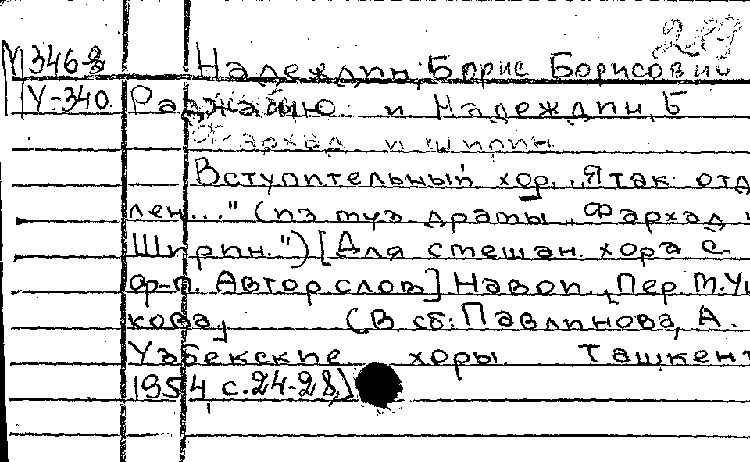 289
М 346-8 Надеждин, Борис Борисович
У-340 Раджабию. и Надеждин, Б
Фархад и Ширин
Вступительный хор „Я так отда
лен..." (из муз драмы „Фархад и
Ширин.") [Для смешан. хора с
ф-п. Автор слов] Навои, Пер. М.
кова, (В сб: Павлинова, А.
Узбекские хоры. Ташкент
1954, с. 24-28)